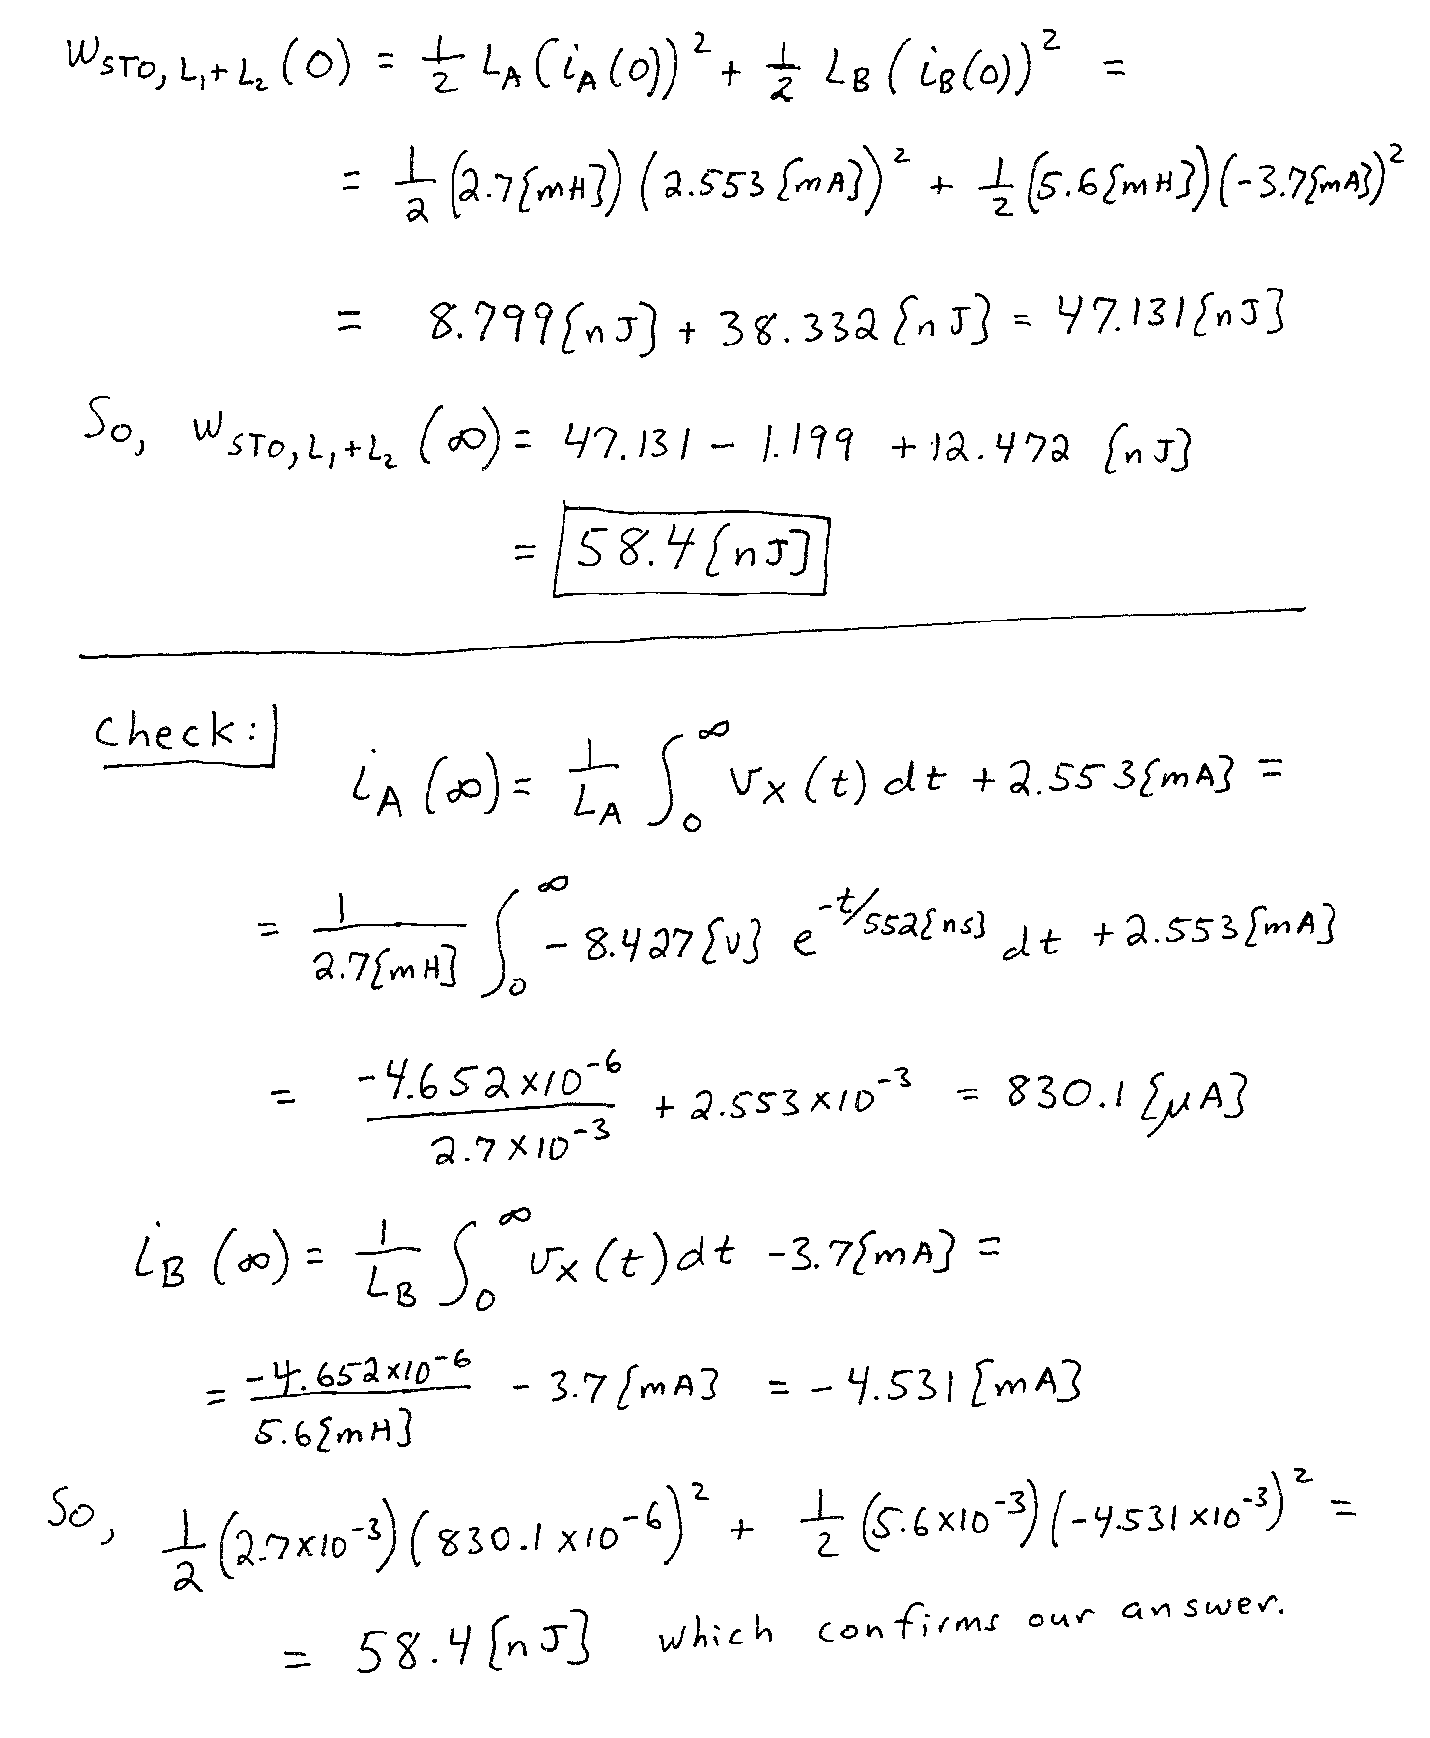 W_STO, L₁+L₂ (0) = 1/2 L_A (i_A(0))² + 1/2 L_B (i_B(0))² =
= 1/2 (2.7[mH]) (2.553[mA])² + 1/2 (5.6[mH]) (-3.7[mA])²
= 8.799[nJ] + 38.332[nJ] = 47.131[nJ]
So, W_STO, L₁+L₂ (∞) = 47.131 - 1.199 + 12.472 [nJ]
= 58.4[nJ]
Check:
i_A (∞) = 1/L_A ∫₀^∞ v_X (t) dt + 2.553[mA] =
= 1/2.7[mH] ∫₀^∞ -8.427[V] e^(-t/552[ns]) dt + 2.553[mA]
= -4.652×10⁻⁶/2.7×10⁻³ + 2.553×10⁻³ = 830.1[μA]
i_B (∞) = 1/L_B ∫₀^∞ v_X (t) dt -3.7[mA] =
= -4.652×10⁻⁶/5.6[mH] - 3.7[mA] = -4.531[mA]
So, 1/2 (2.7×10⁻³) (830.1×10⁻⁶)² + 1/2 (5.6×10⁻³) (-4.531×10⁻³)² =
= 58.4[nJ] which confirms our answer.